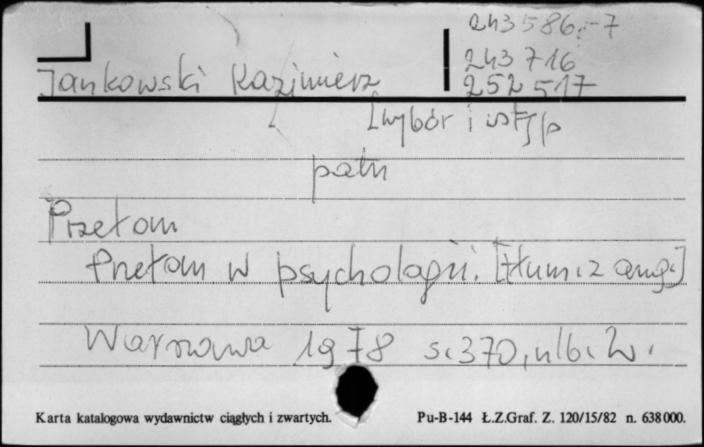 243586-7
243716
252517
Jankowski Kazimierz
[wybór i wstęp
patrz
Przełom
Przełom w psychologii. [tłum. z ang.]
Warszawa 1978 s. 370, nlb. 2.
Karta katalogowa wydawnictw ciągłych i zwartych.
Pu-B-144 Ł.Z.Graf. Z. 120/15/82 n. 638000.